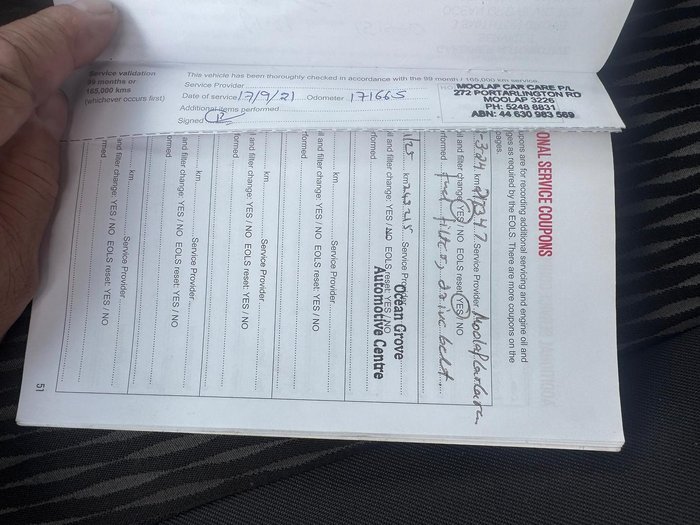 Service validation
99 months or
165,000 kms
(whichever occurs first)
This vehicle has been thoroughly checked in accordance with the 99 month / 165,000 km service.
Service Provider
Date of service 17/9/21 Odometer 171665
Additional items performed
Signed
MOOLAP CAR CARE P/L
272 PORTARLINGTON RD
MOOLAP 3226
PH: 5248 8831
ABN: 44 630 983 569
ONAL SERVICE COUPONS
upons are for recording additional servicing and engine oil and
ges as required by the EOLS. There are more coupons on the
ages.
-3-24 km Service Provider Moolap Car Care
il and filter change: YES / NO EOLS reset: YES / NO
rformed Fuel filter, drive belt
1/25 km 243215 Service Provider
il and filter change: YES / NO EOLS reset: YES / NO
rformed
Ocean Grove
Automotive Centre
km Service Provider
il and filter change: YES / NO EOLS reset: YES / NO
rformed
km Service Provider
il and filter change: YES / NO EOLS reset: YES / NO
rformed
km Service Provider
and filter change: YES / NO EOLS reset: YES / NO
rmed
km Service Provider
and filter change: YES / NO EOLS reset: YES / NO
rmed
51